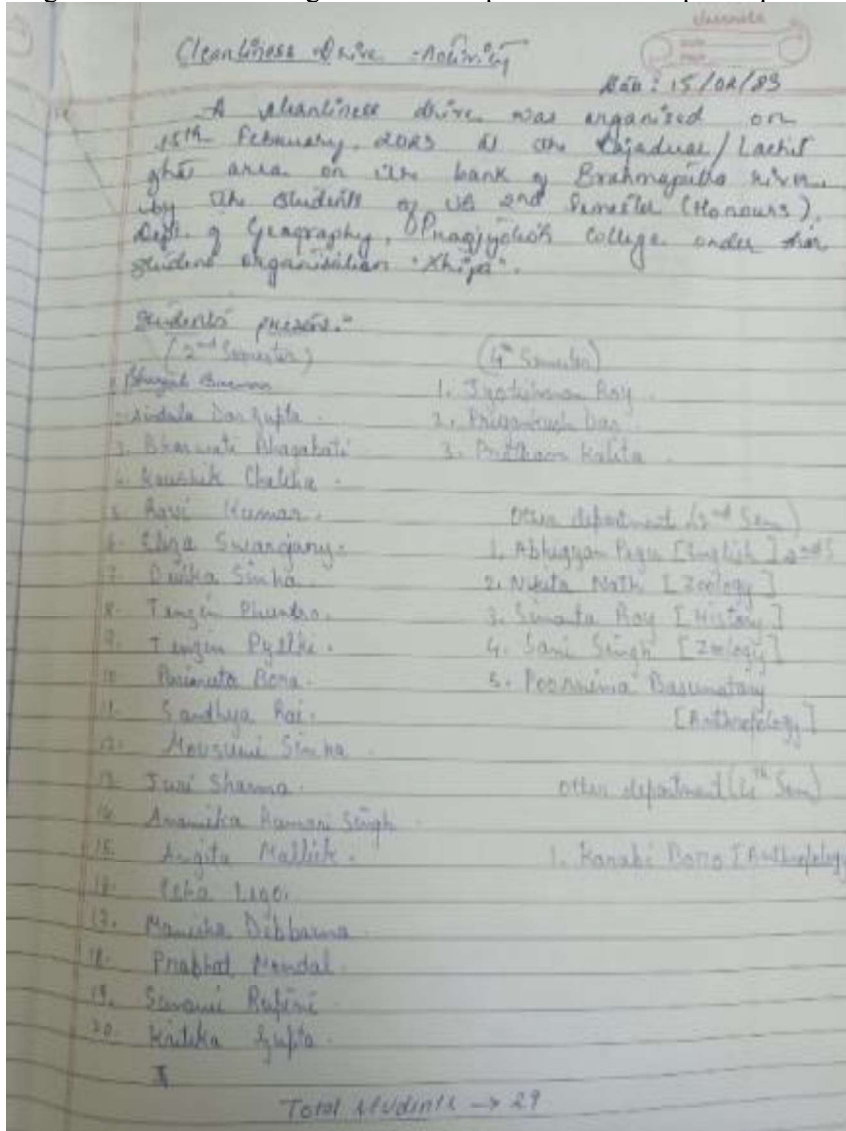 Cleanliness Drive - Activity
Date: 15/02/23
A cleanliness drive was organised on
15th February, 2023 at the / Lachit
ghat area on the bank of Brahmaputra river
by the students of UG 2nd Semester (Honours),
Dept. of Geography, Pragjyotish College under their
student organisation "Xhipa".
Students present:-
(2nd Semester)
(4th Semester)
1. Barman
2. Das Gupta
3. Bhagabati
4. Koushik
5. Ravi Kumar.
6. Swargiary.
7. Sinha.
8. Tenzin
9. Tenzin
10. Bora.
11. Sandhya Rai.
12. Mousumi Sinha
13. Juri Sharma.
14. Anamika Kumari Singh
15. Mallick.
16. Lego.
17. Manisha Debbarma
18. Prabhat Mondal.
19. Rupini
20. Kritika Gupta.
1. Roy.
2. Priyankush Das.
3. Pritham Kalita.
Other department (2nd Sem)
1. Abhigyan Pegu [English]
2. Nikita Nath [Zoology]
3. Roy [History]
4. Singh [Zoology]
5. Poornima Basumatary
[Anthropology]
Other department (4th Sem)
1. Boro [Anthropology
Total students → 29